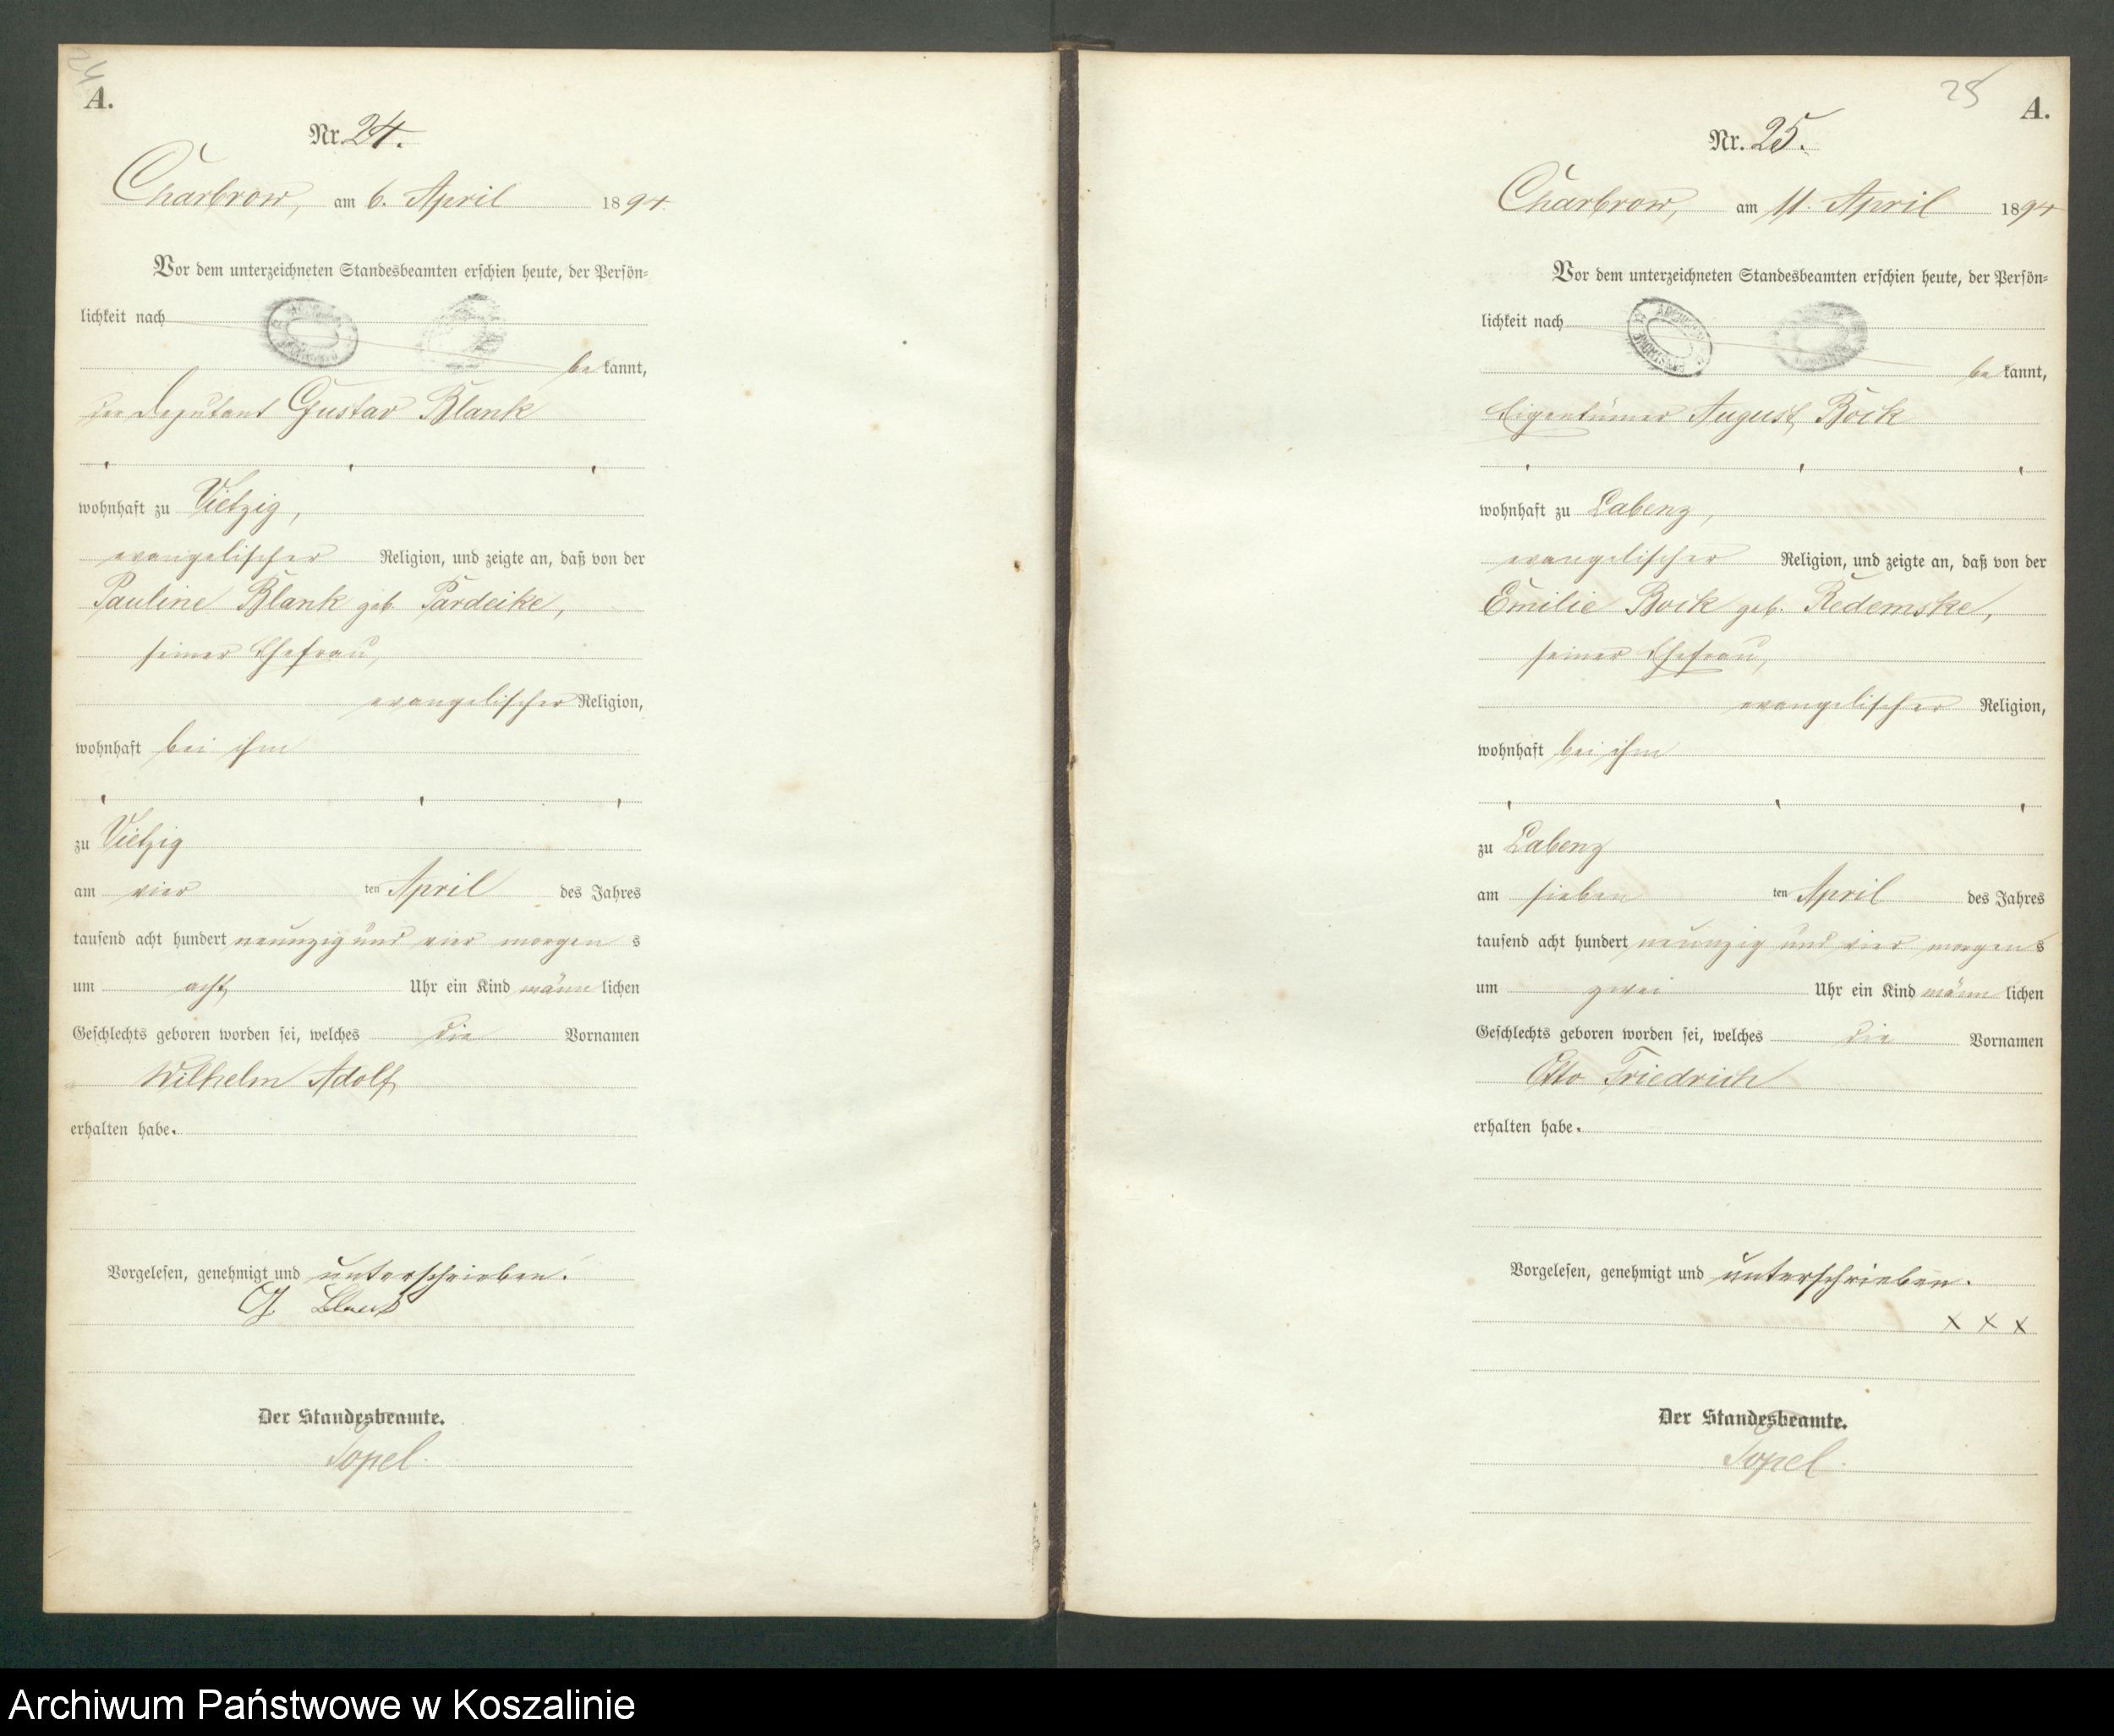 24
A.
Nr. 24.
Charbrow, am 6. April 1894.
Vor dem unterzeichneten Standesbeamten erschien heute, der Persön-
lichkeit nach
bekannt,
der Deputant Gustav Blank
wohnhaft zu Vietzig,
evangelischer Religion, und zeigte an, daß von der
Pauline Blank geb. Pardeike,
seiner Ehefrau,
evangelischer Religion,
wohnhaft bei ihm
zu Vietzig
am vier ten April des Jahres
tausend acht hundert neunzig und vier morgens
um acht Uhr ein Kind männlichen
Geschlechts geboren worden sei, welches die Vornamen
Wilhelm Adolf
erhalten habe.
Vorgelesen, genehmigt und unterschrieben.
G. Blank
Der Standesbeamte.
Topel.
25
A.
Nr. 25.
Charbrow, am 11. April 1894
Vor dem unterzeichneten Standesbeamten erschien heute, der Persön-
lichkeit nach
bekannt,
Eigentümer August Bock
wohnhaft zu Labenz,
evangelischer Religion, und zeigte an, daß von der
Emilie Bock geb. Redemske,
seiner Ehefrau,
evangelischer Religion,
wohnhaft bei ihm
zu Labenz
am sieben ten April des Jahres
tausend acht hundert neunzig und vier morgens
um zwei Uhr ein Kind männlichen
Geschlechts geboren worden sei, welches die Vornamen
Otto Friedrich
erhalten habe.
Vorgelesen, genehmigt und unterschrieben.
x x x
Der Standesbeamte.
Topel.
Archiwum Państwowe w Koszalinie